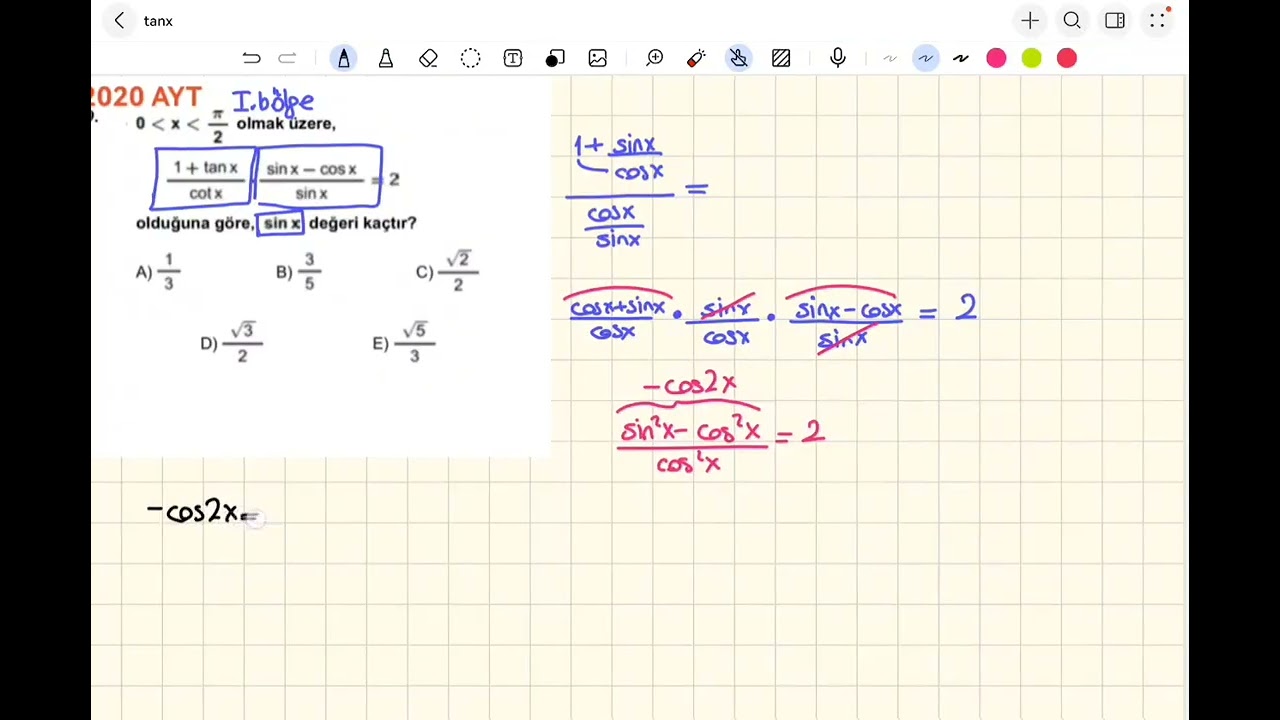 tanx
2020 AYT I.bölge
0 < x < π/2 olmak üzere,
(1 + tan x)/(cot x) · (sin x − cos x)/(sin x) = 2
olduğuna göre, sin x değeri kaçtır?
A) 1/3 B) 3/5 C) √2/2
D) √3/2 E) √5/3
(1 + sinx/cosx)/(cosx/sinx) =
(cosx+sinx)/cosx · sinx/cosx · (sinx − cosx)/sinx = 2
−cos2x
(sin²x − cos²x)/cos²x = 2
−cos2x=